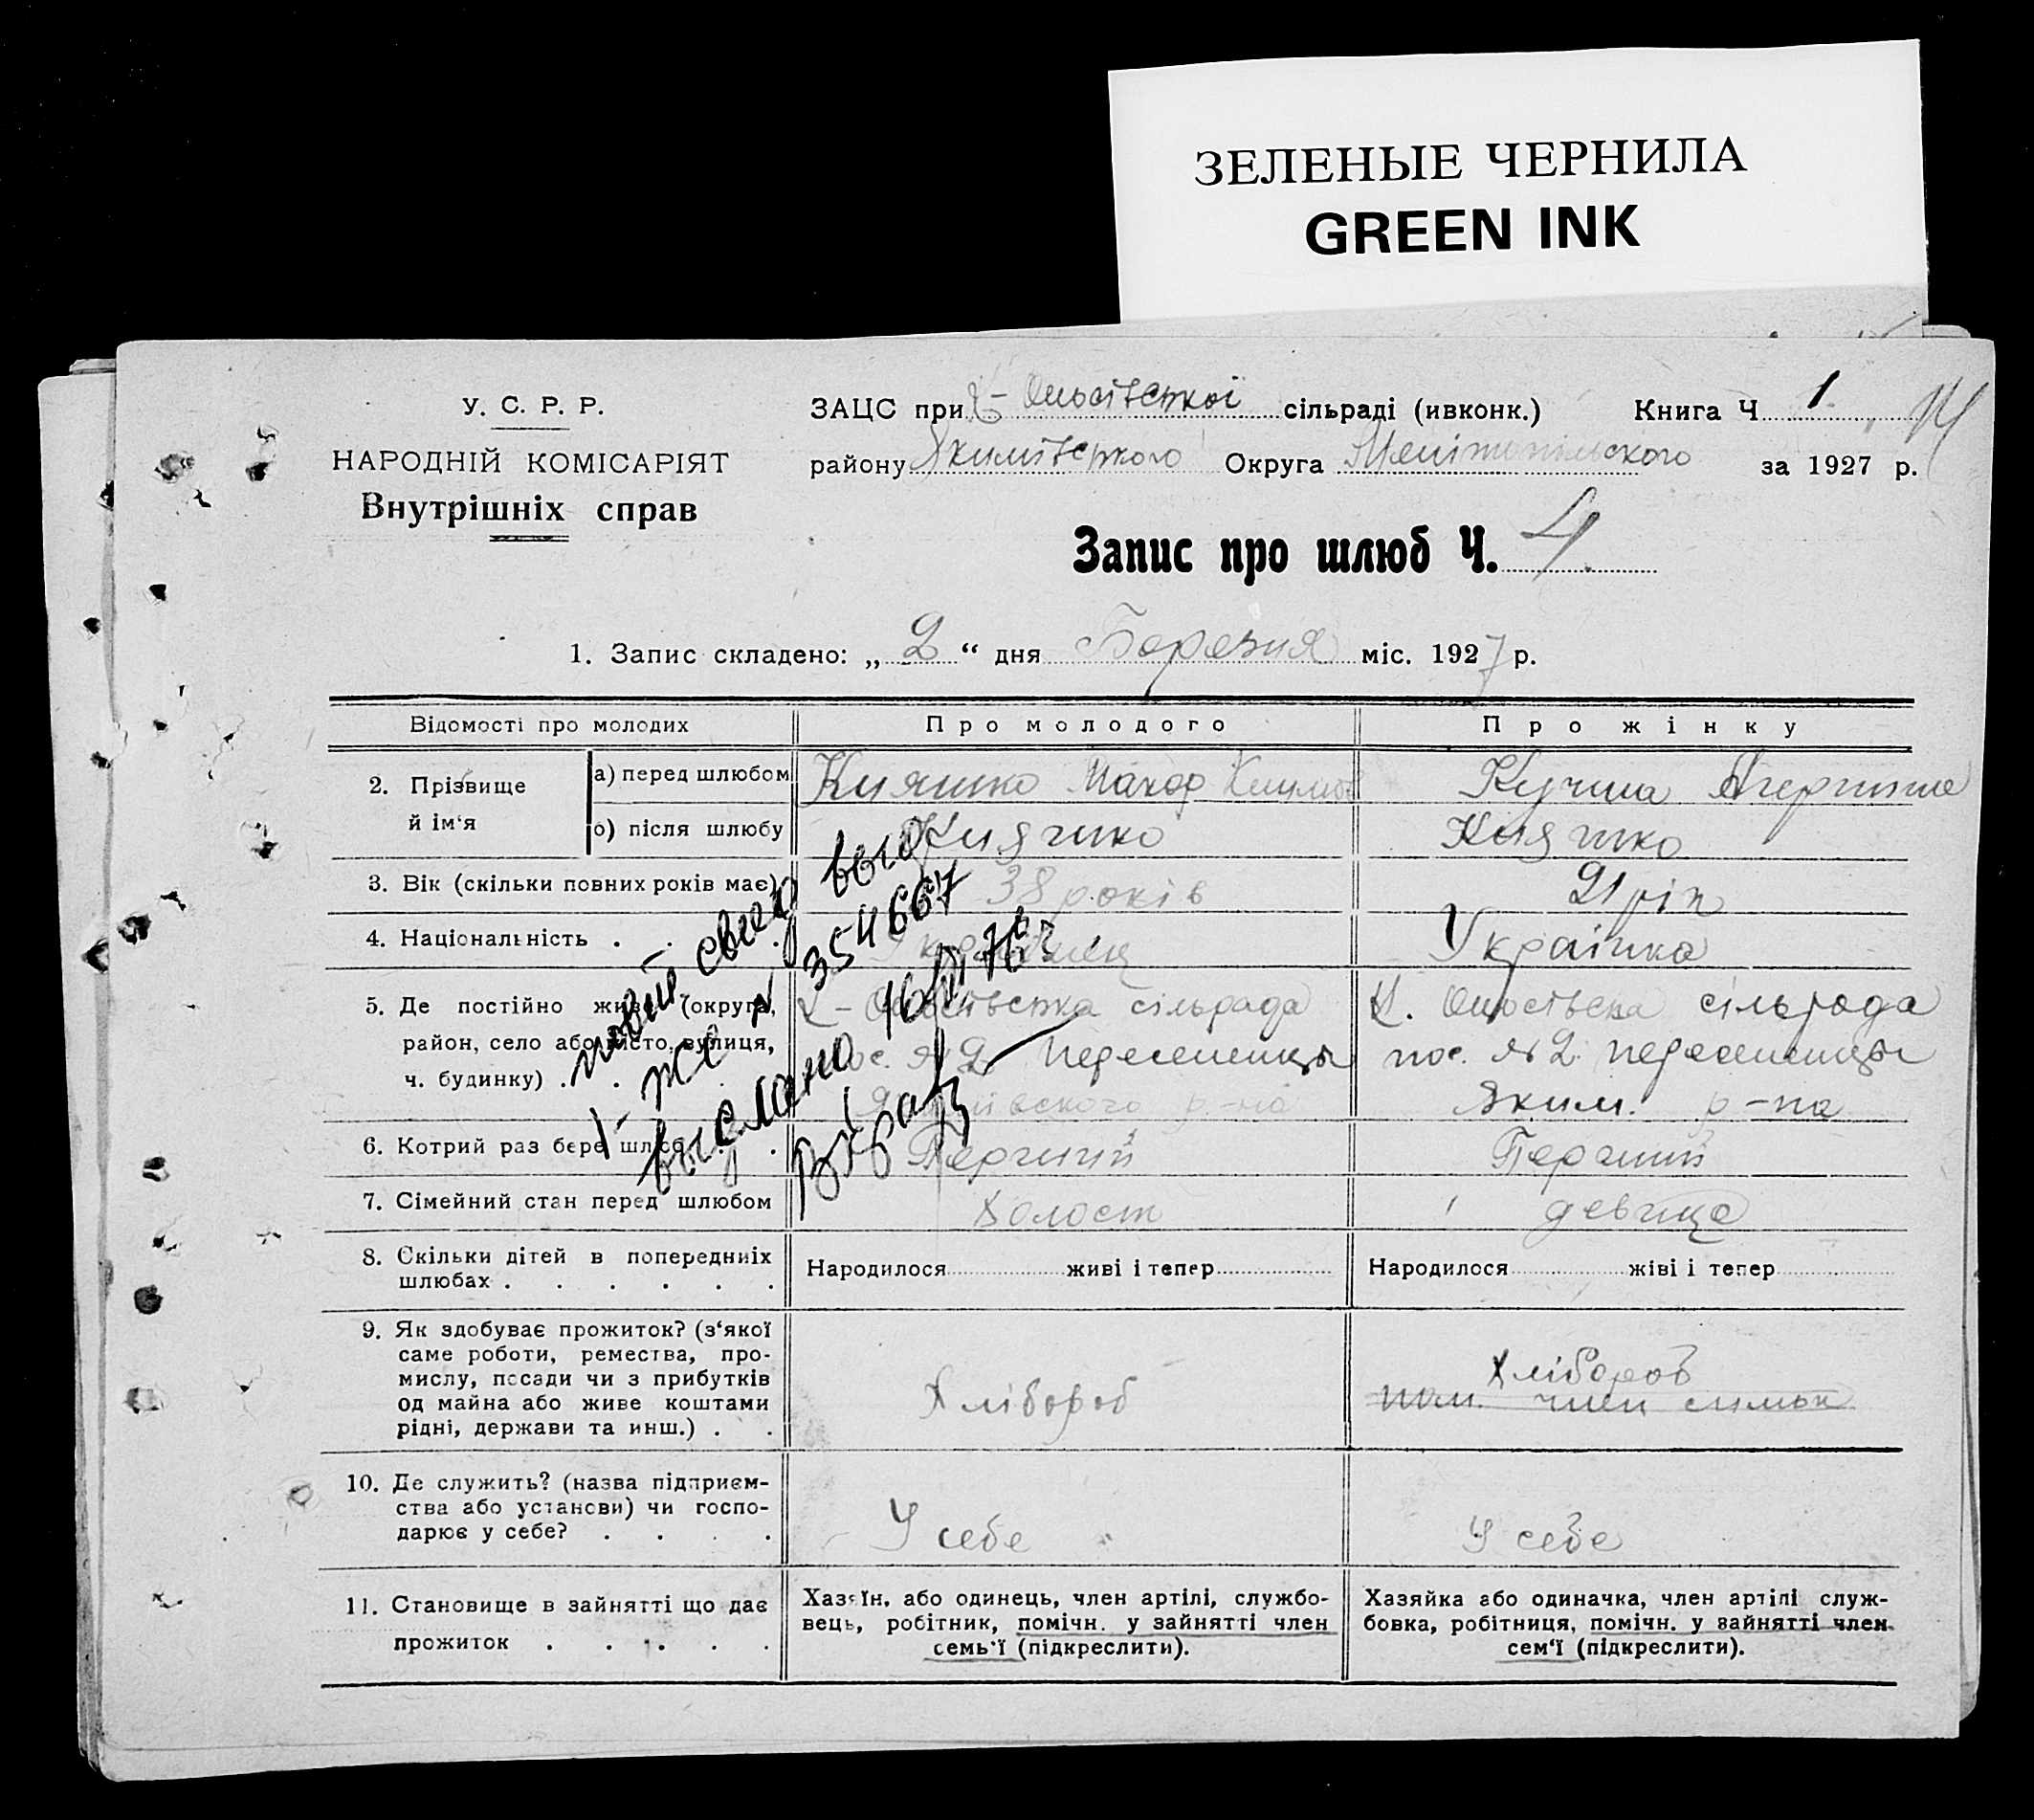 ЗЕЛЕНЫЕ ЧЕРНИЛА
GREEN INK
У. С. Р. Р.
НАРОДНІЙ КОМІСАРІЯТ
Внутрішніх справ
ЗАЦС при сільраді (ивконк.) Книга Ч 1
району Якимівського Округа Мелітопільского за 1927 р.
Запис про шлюб Ч. 4
1. Запис складено: „ 2 “ дня Березня міс. 1927 р.
Відомості про молодих Про молодого Про жінку
2. Прізвище й ім‘я
а) перед шлюбом Кияшко Кучма
б) після шлюбу Кияшко Кияшко
3. Вік (скільки повних років має) 38 років 21 рік
4. Національність . . . Українец Українка
5. Де постійно живе (округа, район, село або місто, вулиця, ч. будинку) . . .
сільрада
пос. № 2 Переселенцы
р-на
сільрада
пос. № 2 переселенцы
Яким. р-на
6. Котрий раз бере шлюб . . Перший Перший
7. Сімейний стан перед шлюбом Холост девица
8. Скільки дітей в попередниіх шлюбах . . . . . .
Народилося живі і тепер
Народилося жіві і тепер
9. Як здобуває прожиток? (з‘якої
саме роботи, ремества, про-
мислу, посади чи з прибутків
од майна або живе коштами
рідні, держави та инш.) . .
Хлібороб
Хлібороб
пом. член симьи
10. Де служить? (назва підприєм-
ства або установи) чи госпо-
дарює у себе? . . . .
У себе
У себе
11. Становище в зайнятті що дає
прожиток . . . . .
Хазяїн, або одинець, член артілі, службо-
вець, робітник, помічн. у зайнятті член
семь‘ї (підкреслити).
Хазяйка або одиначка, член артілі служ-
бовка, робітниця, помічн. у зайнятті член
сем‘ї (підкреслити).
354667
выслано